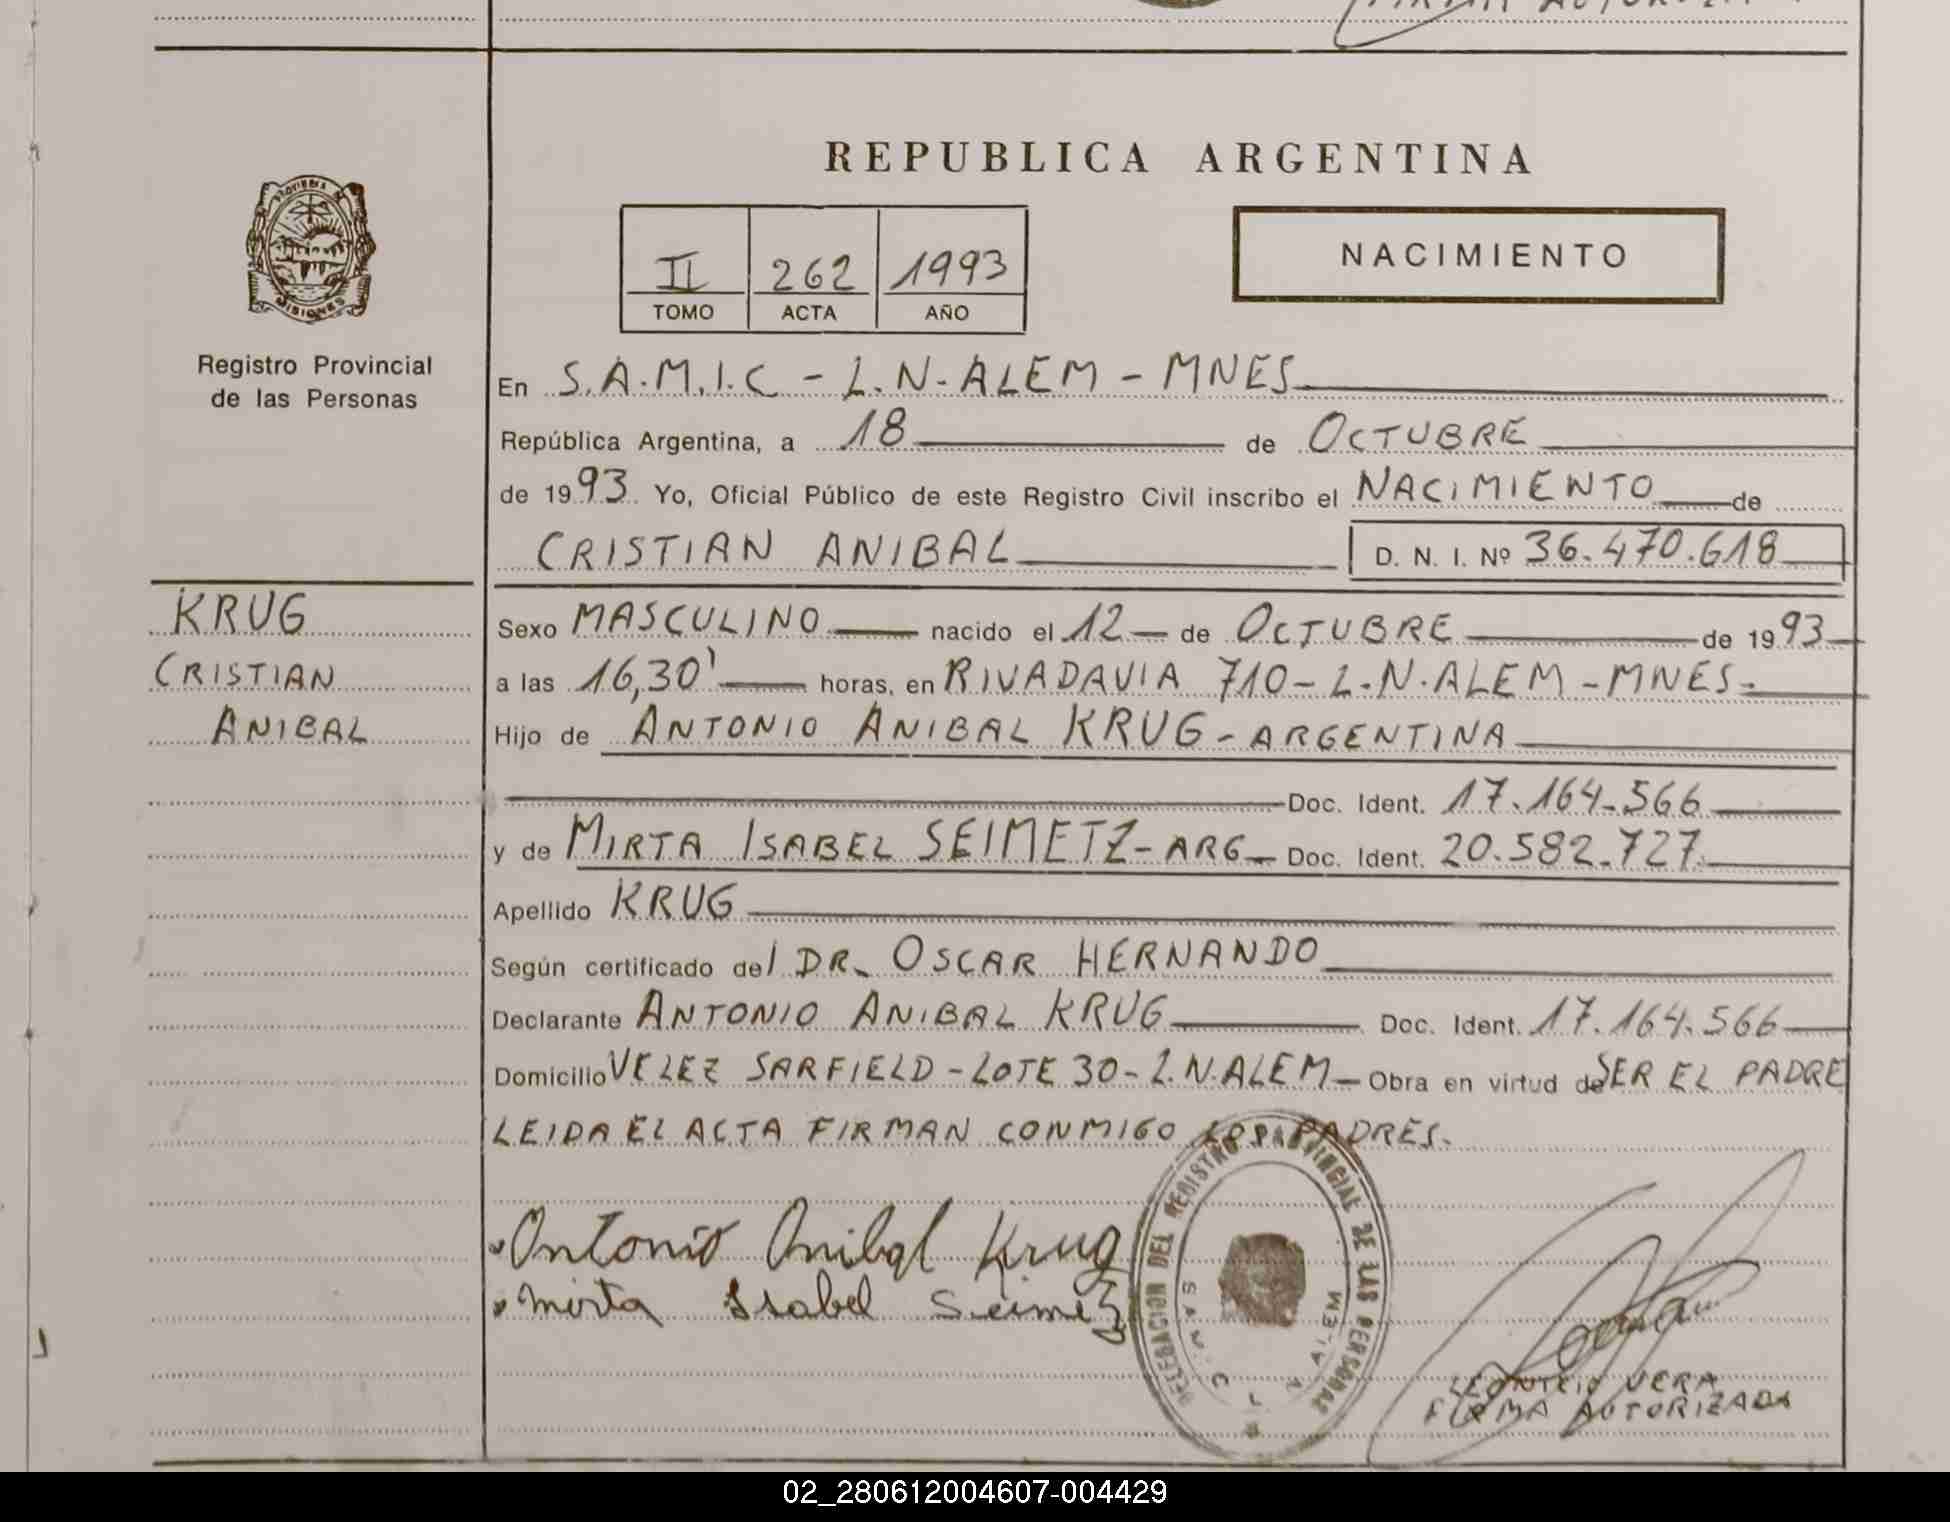 REPUBLICA ARGENTINA
PROVINCIA
MISIONES
Registro Provincial
de las Personas
II 262 1993
TOMO ACTA AÑO
NACIMIENTO
En S.A.M.I.C - L.N.ALEM - MNES
República Argentina, a 18 de OCTUBRE
de 1993 Yo, Oficial Público de este Registro Civil inscribo el NACIMIENTO de
CRISTIAN ANIBAL D. N. I. Nº 36.470.618
KRUG
CRISTIAN
ANIBAL
Sexo MASCULINO nacido el 12 de OCTUBRE de 1993
a las 16,30' horas, en RIVADAVIA 710-L.N.ALEM-MNES-
Hijo de ANTONIO ANIBAL KRUG-ARGENTINA
Doc. Ident. 17.164.566
y de MIRTA ISABEL SEIMETZ-ARG Doc. Ident. 20.582.727
Apellido KRUG
Según certificado del DR. OSCAR HERNANDO
Declarante ANTONIO ANIBAL KRUG Doc. Ident. 17.164.566
Domicilio VELEZ SARFIELD-LOTE 30-L.N.ALEM Obra en virtud de SER EL PADRE
LEIDA EL ACTA FIRMAN CONMIGO LOS PADRES.
Antonio Anibal Krug
Mirta Isabel Seimetz
DELEGACION DEL REGISTRO PROVINCIAL DE LAS PERSONAS
ALEM
VERA
FIRMA AUTORIZADA
02_280612004607-004429